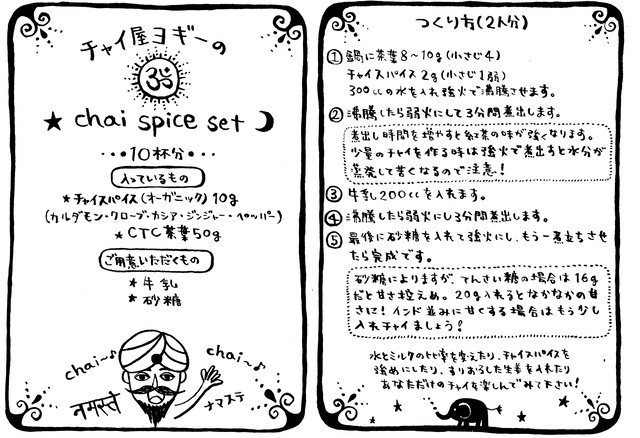 チャイ屋ヨギーの
ॐ
★ chai spice set
・・●10杯分●・・
入っているもの
★チャイスパイス(オーガニック)10g
(カルダモン・クローブ・カシア・ジンジャー・ペッパー)
★CTC茶葉50g
ご用意いただくもの
★牛乳
★砂糖
chai〜♪
chai〜♪
नमस्ते
ナマステ
つくり方(2人分)
①鍋に茶葉8〜10g(小さじ4)
チャイスパイス2g(小さじ1弱)
300ccの水を入れ強火で沸騰させます。
②沸騰したら弱火にして3分間煮出します。
煮出し時間を増やすと紅茶の味が強くなります。
少量のチャイを作る時は強火で煮出すと水分が
蒸発して苦くなるので注意!
③牛乳200ccを入れます。
④沸騰したら弱火にし3分間煮出します。
⑤最後に砂糖を入れて強火にし、もう一煮立ちさせ
たら完成です。
砂糖によりますが、てんさい糖の場合は16g
だと甘さ控えめ。20g入れるとなかなかの甘
さに!インド並みに甘くする場合はもう少し
入れチャイましょう!
水とミルクの比率を変えたり、チャイスパイスを
強めにしたり、すりおろした生姜を入れたり
あなただけのチャイを楽しんでみて下さい!